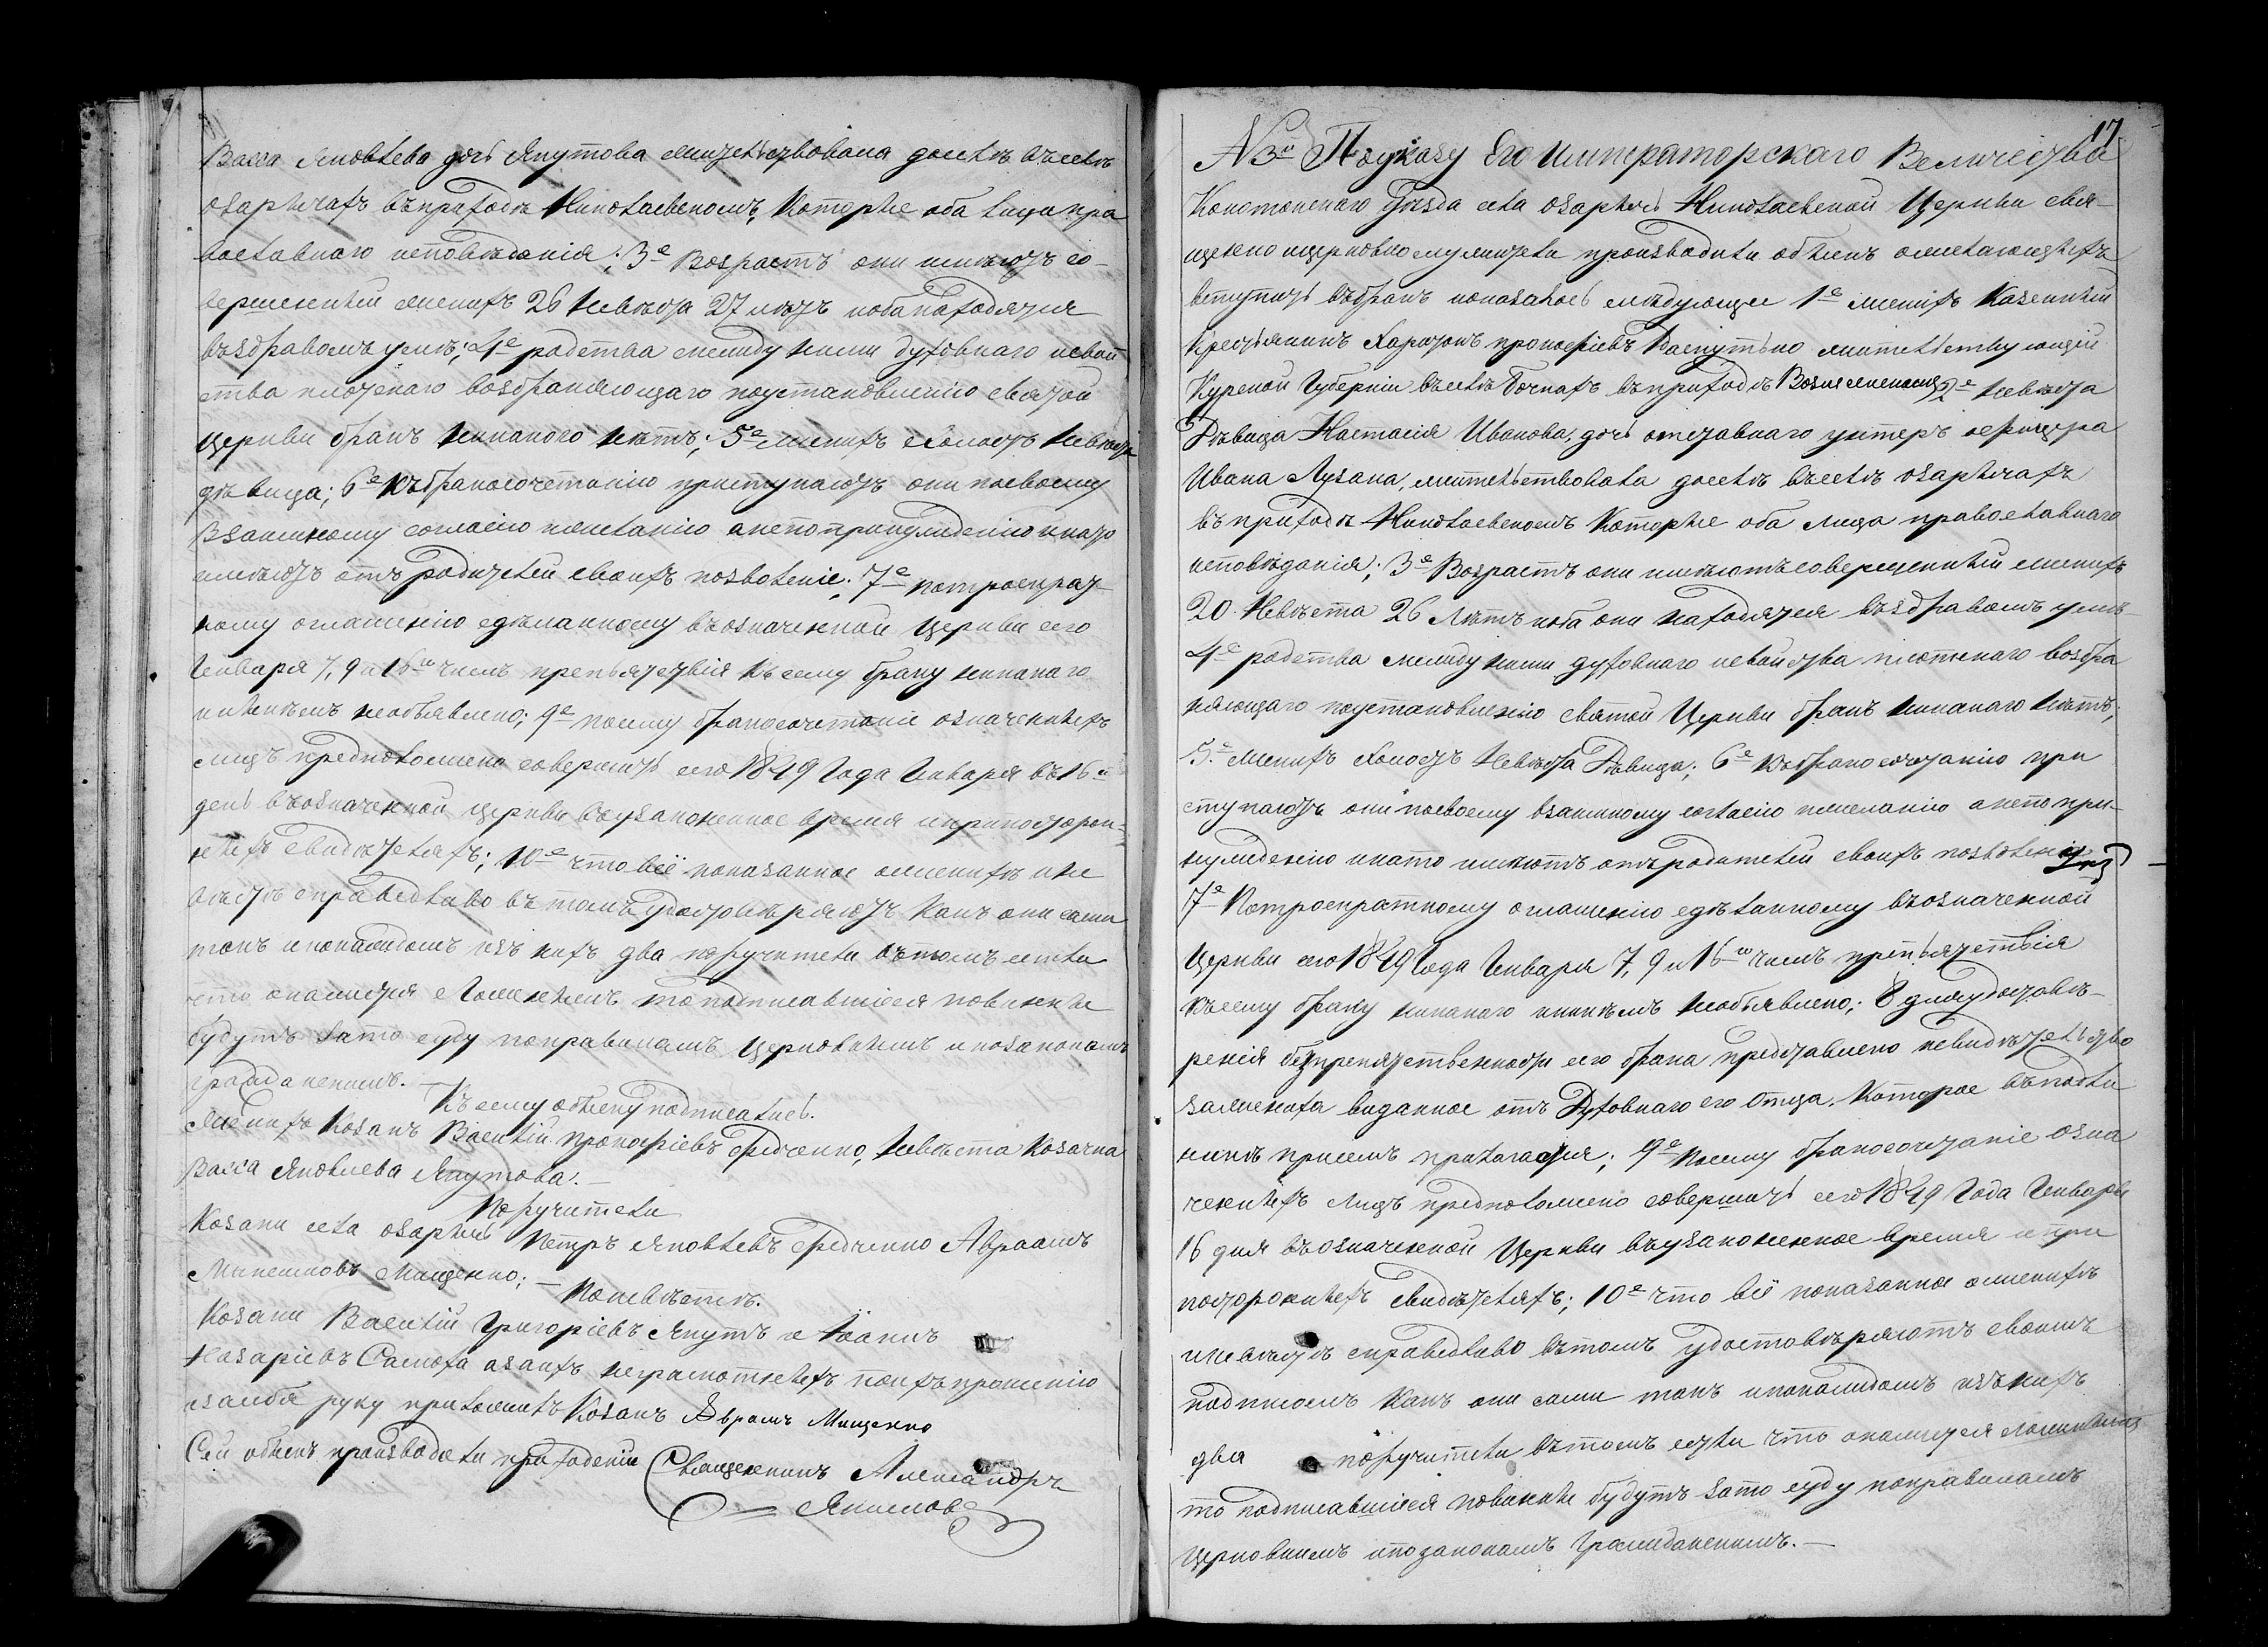 Васса Яковлева дочь Якутова жительствовала доселѣ въселѣ
озарычахъ въприходѣ Николаевскомъ, Которые оба лица пра
вославнаго исповѣданія; 3е Возрастъ они имѣютъ со-
вершенный женихъ 26 Невѣста 27 лѣтъ иоба находятся
въздравомъ умѣ; 4е родства между ними духовнаго исвой
ства плотскаго возбраняющаго поустановленію святой
Церкви бракъ никакого нѣтъ; 5е женихъ холостъ Невѣста
дѣвица; 6е Къбракосочетанію приступаютъ они посвоему
взаимному согласію ижеланію анепопринужденію инато
имѣютъ отъ родителей своихъ позволеніе; 7е потроекрат-
ному оглашенію сдѣланному въозначенной Церкви сего
Генваря 7, 9 и 16го чиселъ препьятствія къ сему браку никакаго
никѣмъ необъявлено; 9е посему бракосочетаніе означенныхъ
лицъ предположено совершить сего 1849 Года Генваря въ 16й
день въозначенной церкви въузаконенное время иприпосторон-
ныхъ свидѣтеляхъ; 10е что всё показанное оженихѣ ине
вѣстѣ справедливо въ томъ удостовѣряютъ Какъ они сами
такъ ипокаждомъ изъ нихъ два поручителя въ томъ если
что окажится Ложнымъ то подписавшіеся повинны
будутъ зато суду поправиламъ Церковнымъ ипозаконамъ
гражданскимъ. —
Къ сему обыску подписались.
Женихъ Козакъ Василій Прокофіевъ Федченко, Невѣста Козачка
Васса Яковлева Якутова. —
Поручители
Козаки села озарычъ Петръ Яковлевъ Федченко Авраамъ
Мищенко; — Поневѣстѣ.
Козаки Василій Григоріевъ Якутъ и Іоанъ
Назаріевъ Самоха азаихъ неграмотныхъ поихъпрошенію
изасебя руку приложилъ Козакъ Аврамъ Мищенко
Сей обыскъ производили приходскій Священникъ Александръ
Якимовъ
17.
N 3й Поуказу Его Императорскаго Величества
Конотопскаго уѣзда села озарычъ Николаевской Церкви свя-
щенно ицерковнослужители производили обыскъ ожелающихъ
вступить въбракъ иоказалось слѣдующее 1е женихъ Казенный
Крестьянинъ Харитонъ прокофіевъ жительствующій
Курской Губерніи въселѣ въприходѣ 2е Невѣста
Дѣвица Настасія Иванова, дочь отставнаго унтеръ офицера
Ивана Лузана, жительствовала доселѣ въселѣ озарычахъ
въ приходѣ Николаевскомъ Которые оба лица православнаго
исповѣданія; 3е Возрастъ они имѣютъ совершенный женихъ
20 Невѣста 26 Лѣтъ иоба они находятся въздравомъ умѣ
4е родства между ними духовнаго исвойства плотскаго возбра
няющаго поустановленію Святой Церкви бракъ никакаго нѣтъ;
5е женихъ холостъ Невѣста Дѣвица; 6е Къбракосочетанію при
ступаютъ они посвоему взаимному согласію ижеланію анепопри-
нужденію инато имѣютъ отъ родителей своихъ позволеніе
7е Потроекратному оглашенію сдѣланному въозначенной
Церкви сего 1849 Года Генваря 7, 9 и 16го чиселъ препьятствія
къ сему браку никакаго никѣмъ необъявлено; 8 дляудостовѣ-
ренія безпрепятственности сего брака представлено
жениха виданное отъ Духовнаго его Отца, Которое въподли
никѣ присемъ прилагается; 9е Посему бракосочетаніе озна
ченныхъ Лицъ предположено совершить сего 1849 Года Генваря
16 дня въозначенной Церкви въузаконенное время ипри
постороннихъ свидѣтеляхъ; 10е что всё показанное оженихѣ
иневѣстѣ справедливо въ томъ удостовѣряютъ своимъ
подписомъ какъ они сами такъ ипокаждомъ изънихъ
два поручители въ томъ если что окажится ложнымъ
то подписавшіеся повинны будутъ зато суду поправиламъ
Церковнымъ ипозаконамъ Гражданскимъ. —